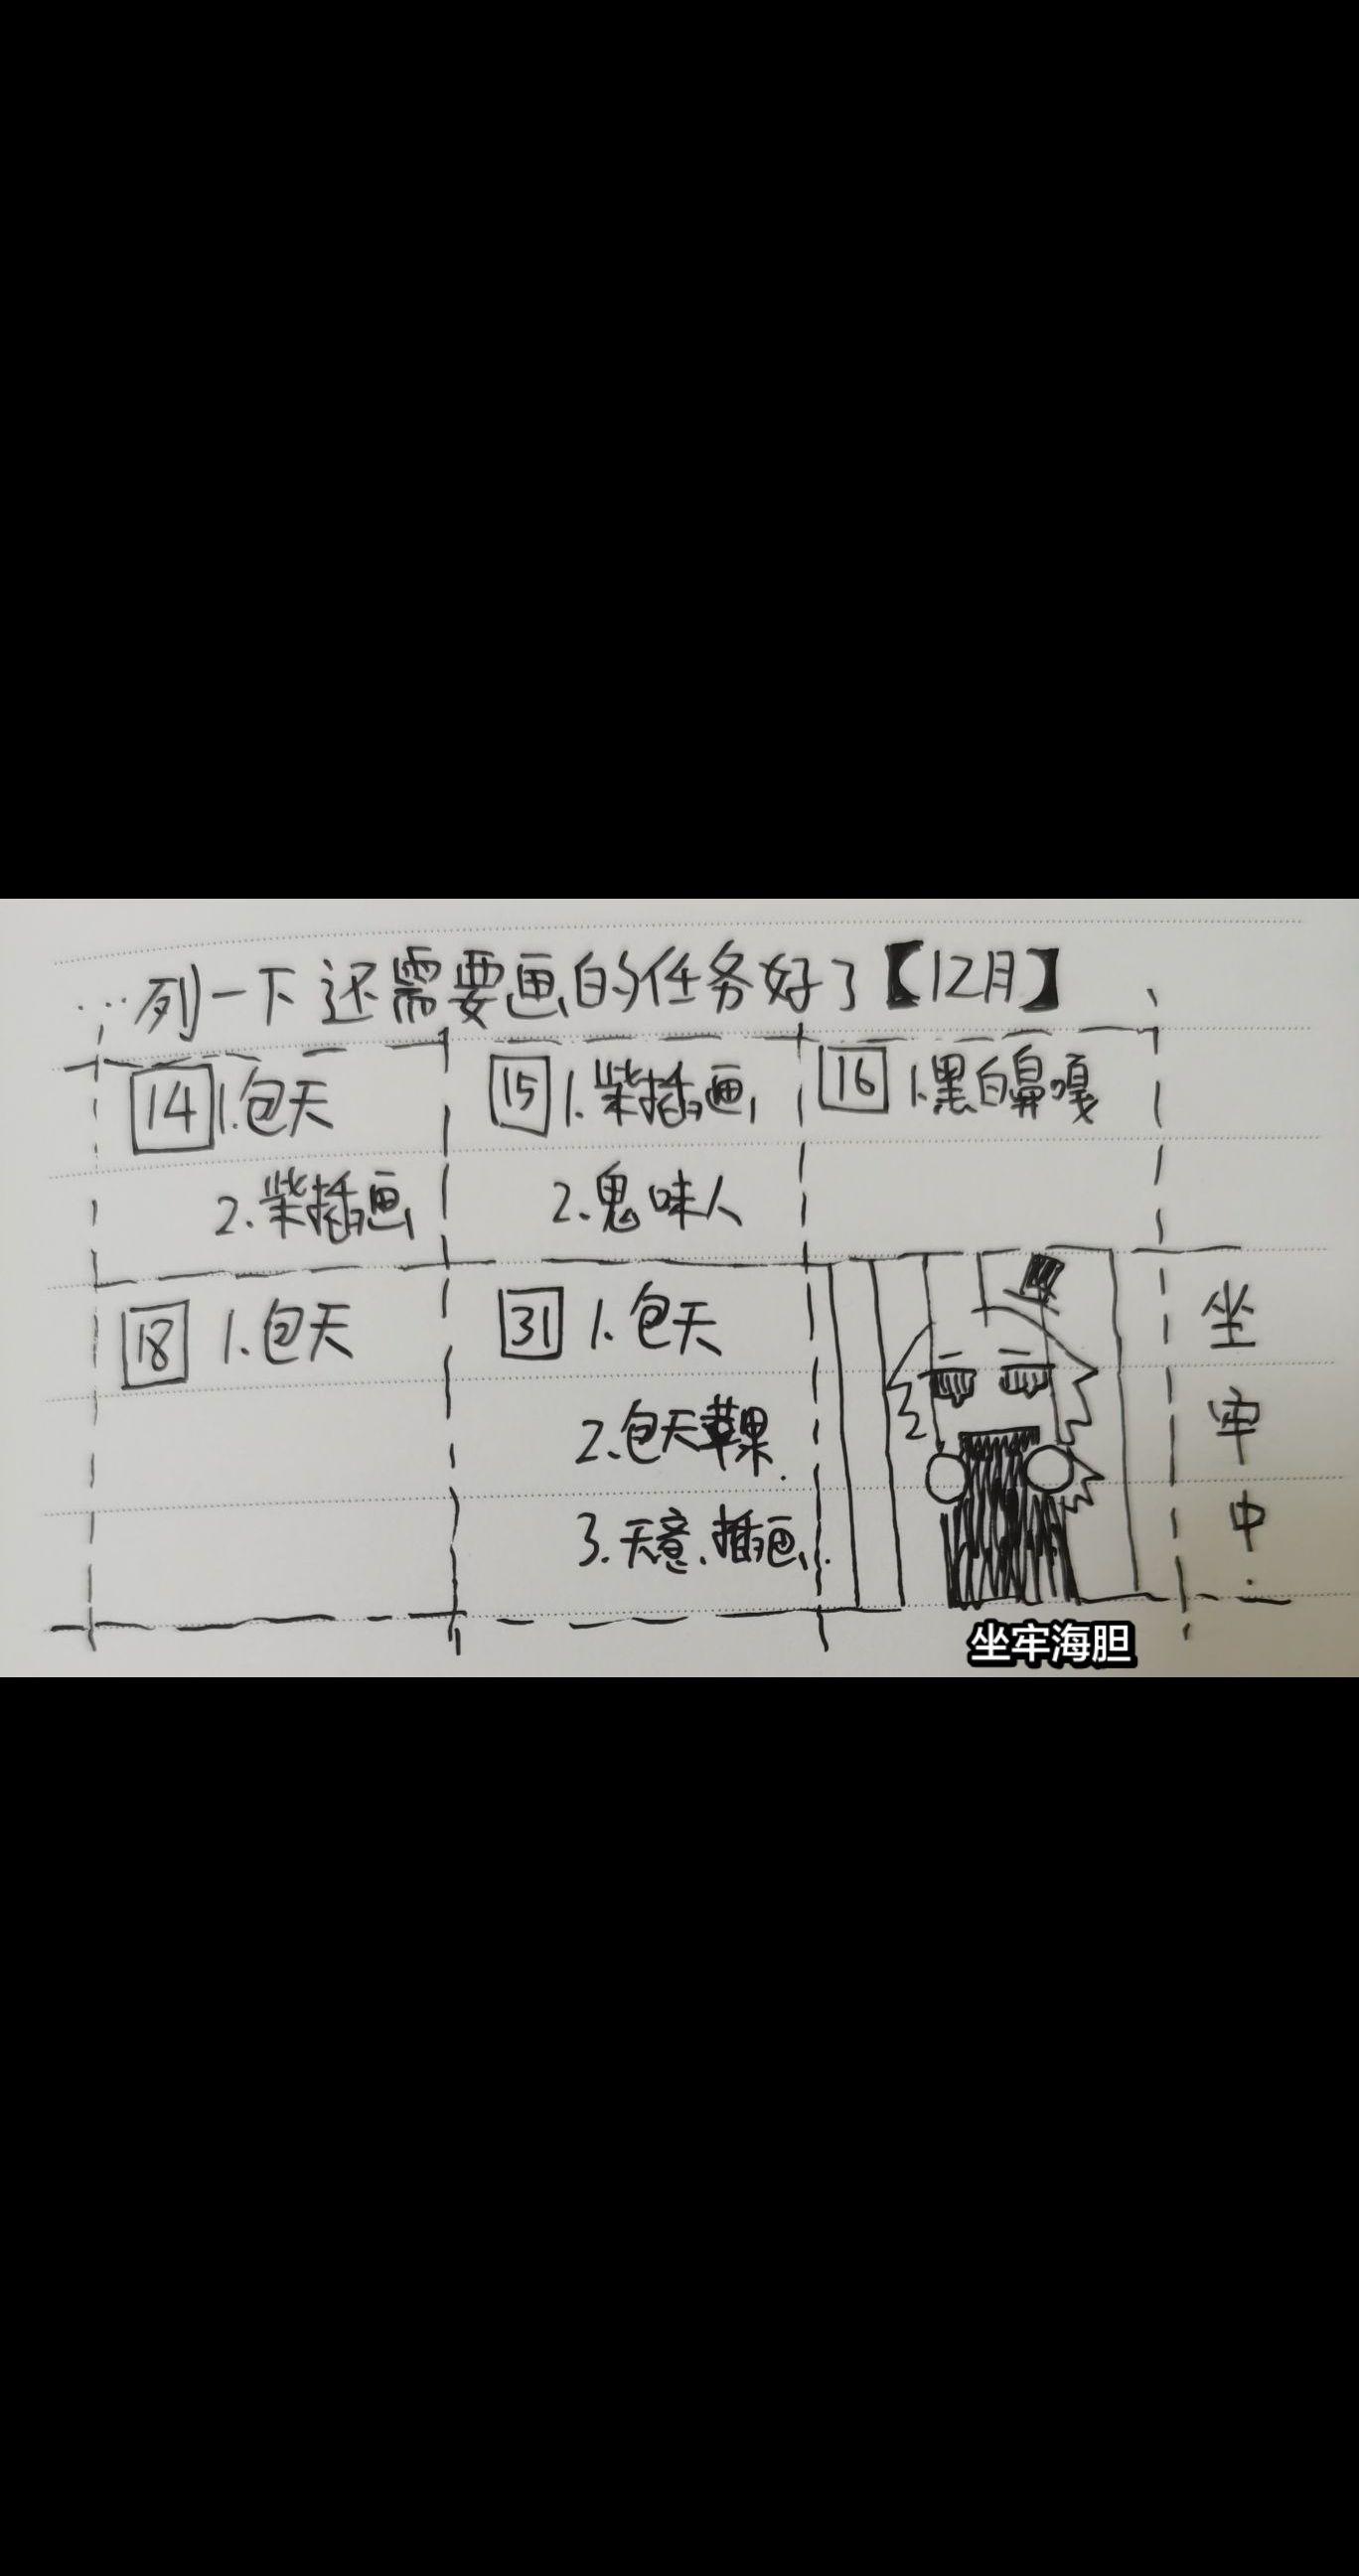 …列一下还需要画的任务好了【12月】
14 1.包天
2.柴插画
15 1.柴插画
2.鬼味人
16 1.黑白鼻嘎
18 1.包天
31 1.包天
2.包天苹果.
3.天意.插画.
坐牢中.
坐牢海胆